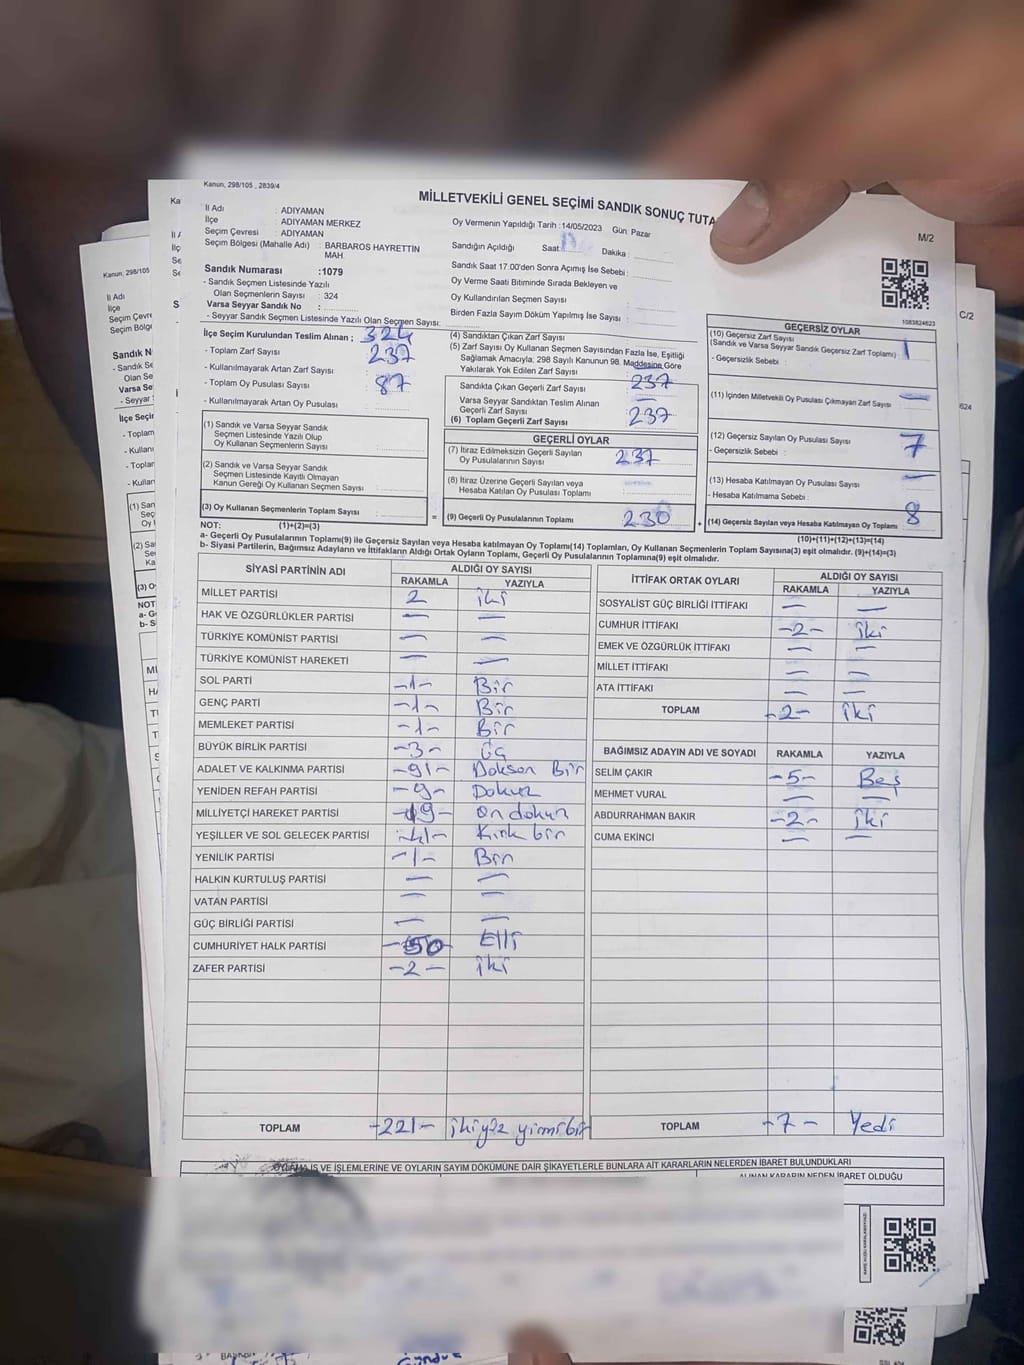 Kanun, 298/105 , 2839/4
MİLLETVEKİLİ GENEL SEÇİMİ SANDIK SONUÇ TUTA
M/2
İl Adı : ADIYAMAN
İlçe : ADIYAMAN MERKEZ
Seçim Çevresi : ADIYAMAN
Seçim Bölgesi (Mahalle Adı) : BARBAROS HAYRETTIN
MAH.
Sandık Numarası :1079
- Sandık Seçmen Listesinde Yazılı
Olan Seçmenlerin Sayısı : 324
Varsa Seyyar Sandık No :
- Seyyar Sandık Seçmen Listesinde Yazılı Olan Seçmen Sayısı:
Oy Vermenin Yapıldığı Tarih :14/05/2023 Gün: Pazar
Sandığın Açıldığı Saat Dakika :
Sandık Saat 17:00'den Sonra Açımış İse Sebebi :
Oy Verme Saati Bitiminde Sırada Bekleyen ve
Oy Kullandırılan Seçmen Sayısı :
Birden Fazla Sayım Döküm Yapılmış İse Sayısı :
1083824623
İlçe Seçim Kurulundan Teslim Alınan ; 324
- Toplam Zarf Sayısı 237
- Kullanılmayarak Artan Zarf Sayısı
- Toplam Oy Pusulası Sayısı 87
- Kullanılmayarak Artan Oy Pusulası
(1) Sandık ve Varsa Seyyar Sandık
Seçmen Listesinde Yazılı Olup
Oy Kullanan Seçmenlerin Sayısı :
(2) Sandık ve Varsa Seyyar Sandık
Seçmen Listesinde Kayıtlı Olmayan
Kanun Gereği Oy Kullanan Seçmen Sayısı :
(3) Oy Kullanan Seçmenlerin Toplam Sayısı :
(4) Sandıktan Çıkan Zarf Sayısı :
(5) Zarf Sayısı Oy Kullanan Seçmen Sayısından Fazla İse, Eşitliği
Sağlamak Amacıyla; 298 Sayılı Kanunun 98. Maddesine Göre
Yakılarak Yok Edilen Zarf Sayısı :
Sandıkta Çıkan Geçerli Zarf Sayısı 237
Varsa Seyyar Sandıktan Teslim Alınan
Geçerli Zarf Sayısı —
(6) Toplam Geçerli Zarf Sayısı 237
GEÇERLİ OYLAR
(7) İtiraz Edilmeksizin Geçerli Sayılan
Oy Pusulalarının Sayısı : 237
(8) İtiraz Üzerine Geçerli Sayılan veya
Hesaba Katılan Oy Pusulası Toplamı : —
= (9) Geçerli Oy Pusulalarının Toplamı 230 +
GEÇERSİZ OYLAR
(10) Geçersiz Zarf Sayısı
(Sandık ve Varsa Seyyar Sandık Geçersiz Zarf Toplamı) : 1
- Geçersizlik Sebebi :
(11) İçinden Milletvekili Oy Pusulası Çıkmayan Zarf Sayısı : —
(12) Geçersiz Sayılan Oy Pusulası Sayısı : 7
- Geçersizlik Sebebi :
(13) Hesaba Katılmayan Oy Pusulası Sayısı : —
- Hesaba Katılmama Sebebi :
(14) Geçersiz Sayılan veya Hesaba Katılmayan Oy Toplamı : 8
NOT: (1)+(2)=(3)
(10)+(11)+(12)+(13)=(14)
a- Geçerli Oy Pusulalarının Toplamı(9) ile Geçersiz Sayılan veya Hesaba katılmayan Oy Toplamı(14) Toplamları, Oy Kullanan Seçmenlerin Toplam Sayısına(3) eşit olmalıdır. (9)+(14)=(3)
b- Siyasi Partilerin, Bağımsız Adayların ve İttifakların Aldığı Ortak Oyların Toplamı, Geçerli Oy Pusulalarının Toplamına(9) eşit olmalıdır.
SİYASİ PARTİNİN ADI ALDIĞI OY SAYISI
RAKAMLA YAZIYLA
MİLLET PARTİSİ 2 iki
HAK VE ÖZGÜRLÜKLER PARTİSİ — —
TÜRKİYE KOMÜNİST PARTİSİ — —
TÜRKİYE KOMÜNİST HAREKETİ — —
SOL PARTİ -1- Bir
GENÇ PARTİ -1- Bir
MEMLEKET PARTİSİ -1- Bir
BÜYÜK BİRLİK PARTİSİ -3- üç
ADALET VE KALKINMA PARTİSİ -91- Doksan Bir
YENİDEN REFAH PARTİSİ -9- Dokuz
MİLLİYETÇİ HAREKET PARTİSİ -19- On dokuz
YEŞİLLER VE SOL GELECEK PARTİSİ -41- Kırk bir
YENİLİK PARTİSİ -1- Bir
HALKIN KURTULUŞ PARTİSİ — —
VATAN PARTİSİ — —
GÜÇ BİRLİĞİ PARTİSİ — —
CUMHURİYET HALK PARTİSİ -50- Elli
ZAFER PARTİSİ -2- iki
TOPLAM -221- ikiyüz yirmibir
İTTİFAK ORTAK OYLARI ALDIĞI OY SAYISI
RAKAMLA YAZIYLA
SOSYALİST GÜÇ BİRLİĞİ İTTİFAKI — —
CUMHUR İTTİFAKI -2- iki
EMEK VE ÖZGÜRLÜK İTTİFAKI — —
MİLLET İTTİFAKI — —
ATA İTTİFAKI — —
TOPLAM -2- iki
BAĞIMSIZ ADAYIN ADI VE SOYADI RAKAMLA YAZIYLA
SELİM ÇAKIR -5- Beş
MEHMET VURAL — —
ABDURRAHMAN BAKIR -2- iki
CUMA EKİNCİ — —
TOPLAM -7- Yedi
OYLAMA İŞ VE İŞLEMLERİNE VE OYLARIN SAYIM DÖKÜMÜNE DAİR ŞİKAYETLERLE BUNLARA AİT KARARLARIN NELERDEN İBARET BULUNDUKLARI
ALINAN KARARIN NEDEN İBARET OLDUĞU
Kanun, 298/105
İl Adı
İlçe
Seçim Çevre
Seçim Bölg
Sandık N
C/2